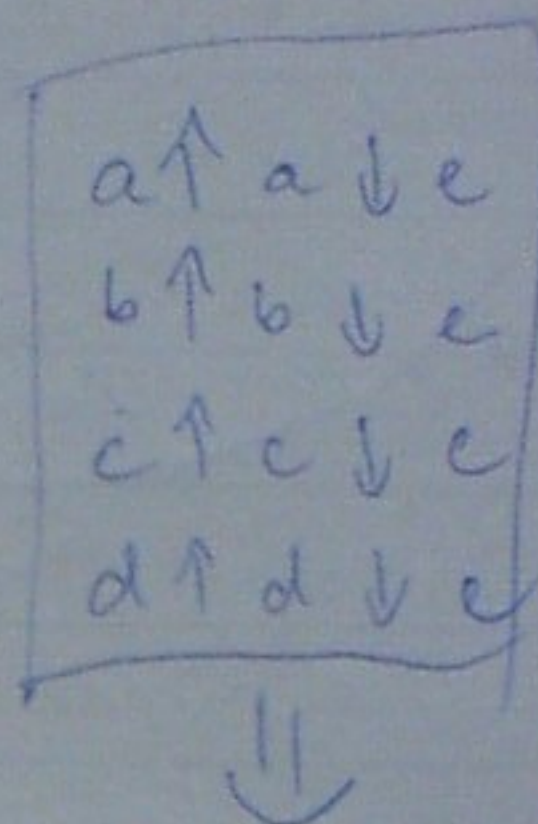 a ↑ a ↓ e
b ↑ b ↓ e
c ↑ c ↓ e
d ↑ d ↓ e
⇓